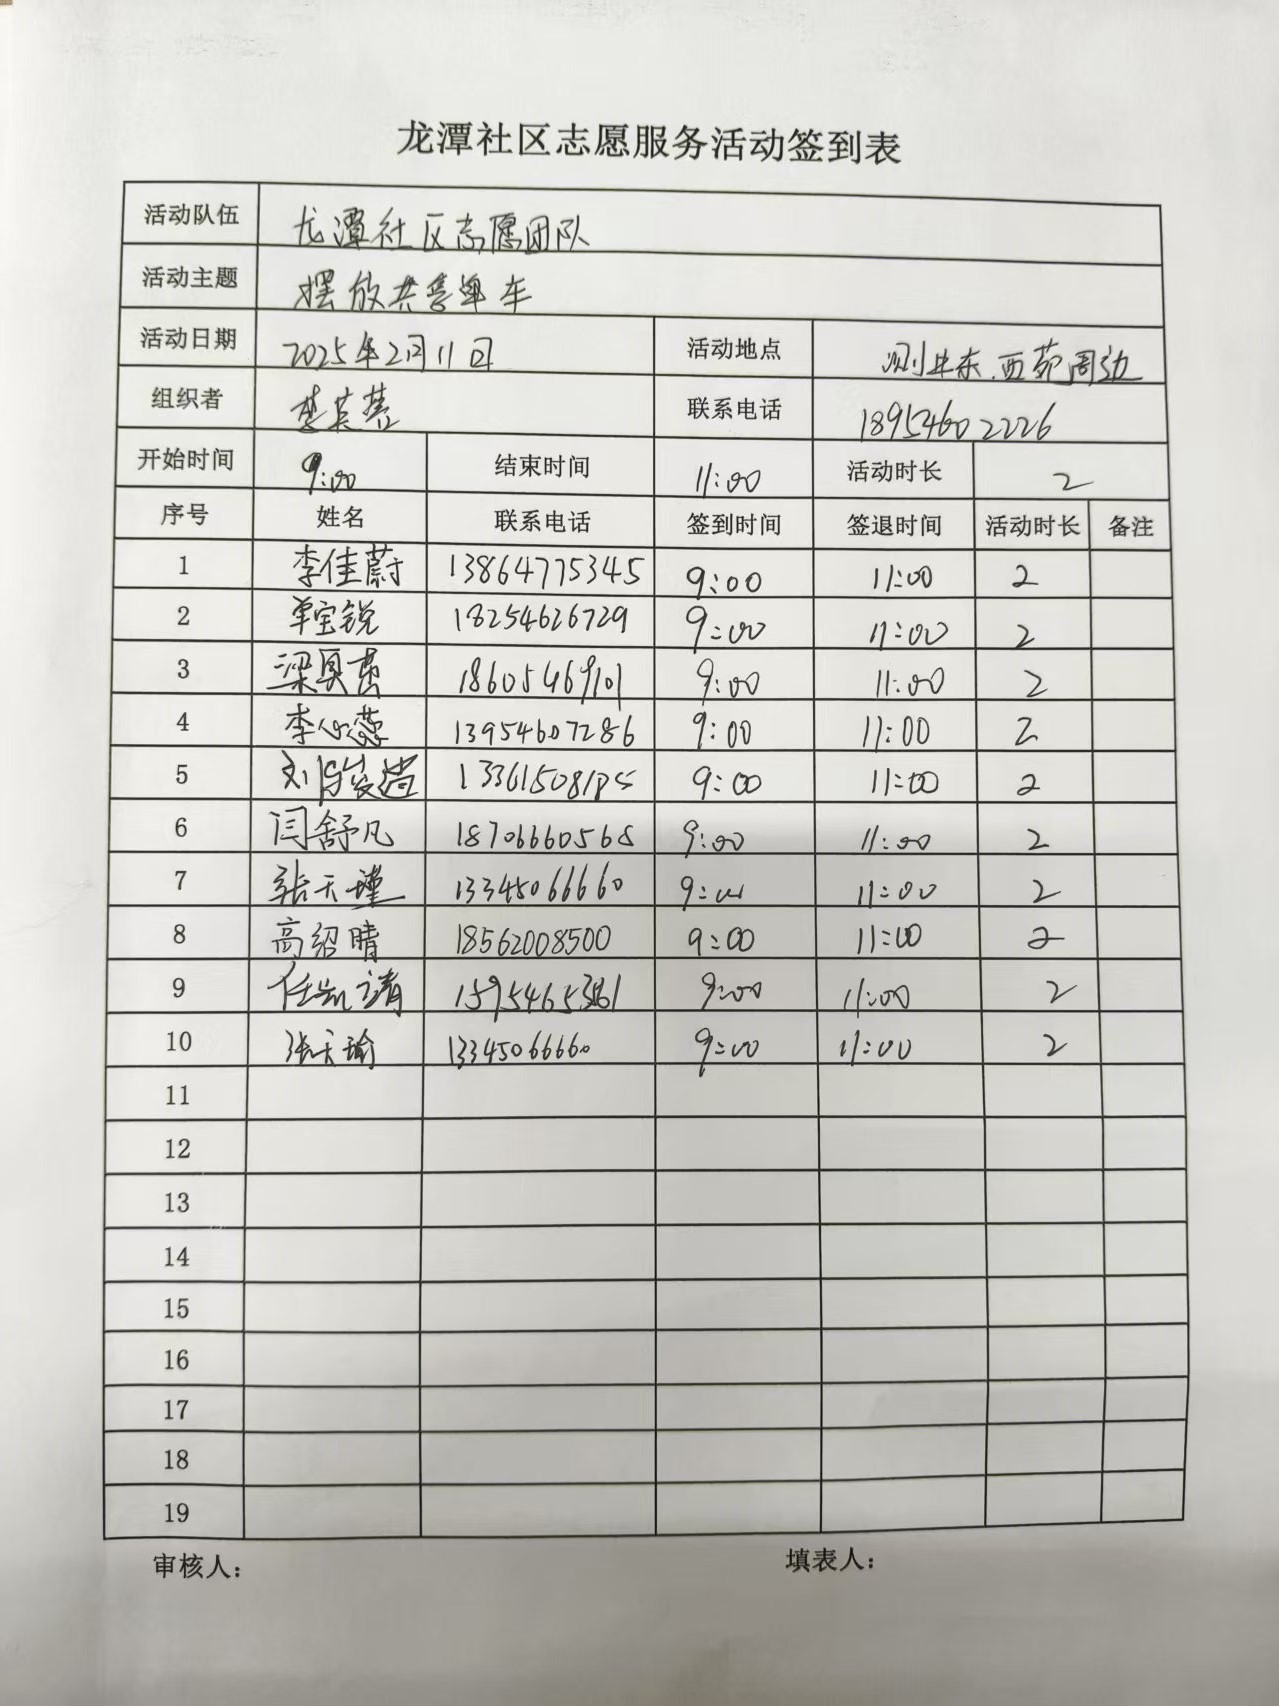 龙潭社区志愿服务活动签到表
活动队伍 龙潭社区志愿团队
活动主题 摆放共享单车
活动日期 2025年2月11日 活动地点 测井东.西苑周边
组织者 联系电话 18954602226
开始时间 9:00 结束时间 11:00 活动时长 2
序号 姓名 联系电话 签到时间 签退时间 活动时长 备注
1 李佳蔚 13864775345 9:00 11:00 2
2 单宝锐 18254626729 9:00 11:00 2
3 18605469101 9:00 11:00 2
4 李心蕊 13954607286 9:00 11:00 2
5 9:00 11:00 2
6 闫舒凡 18706660568 9:00 11:00 2
7 张天瑾 13345066660 9:00 11:00 2
8 高绍晴 18562008500 9:00 11:00 2
9 9:00 11:00 2
10 张天瑜 13345066660 9:00 11:00 2
11
12
13
14
15
16
17
18
19
审核人： 填表人：